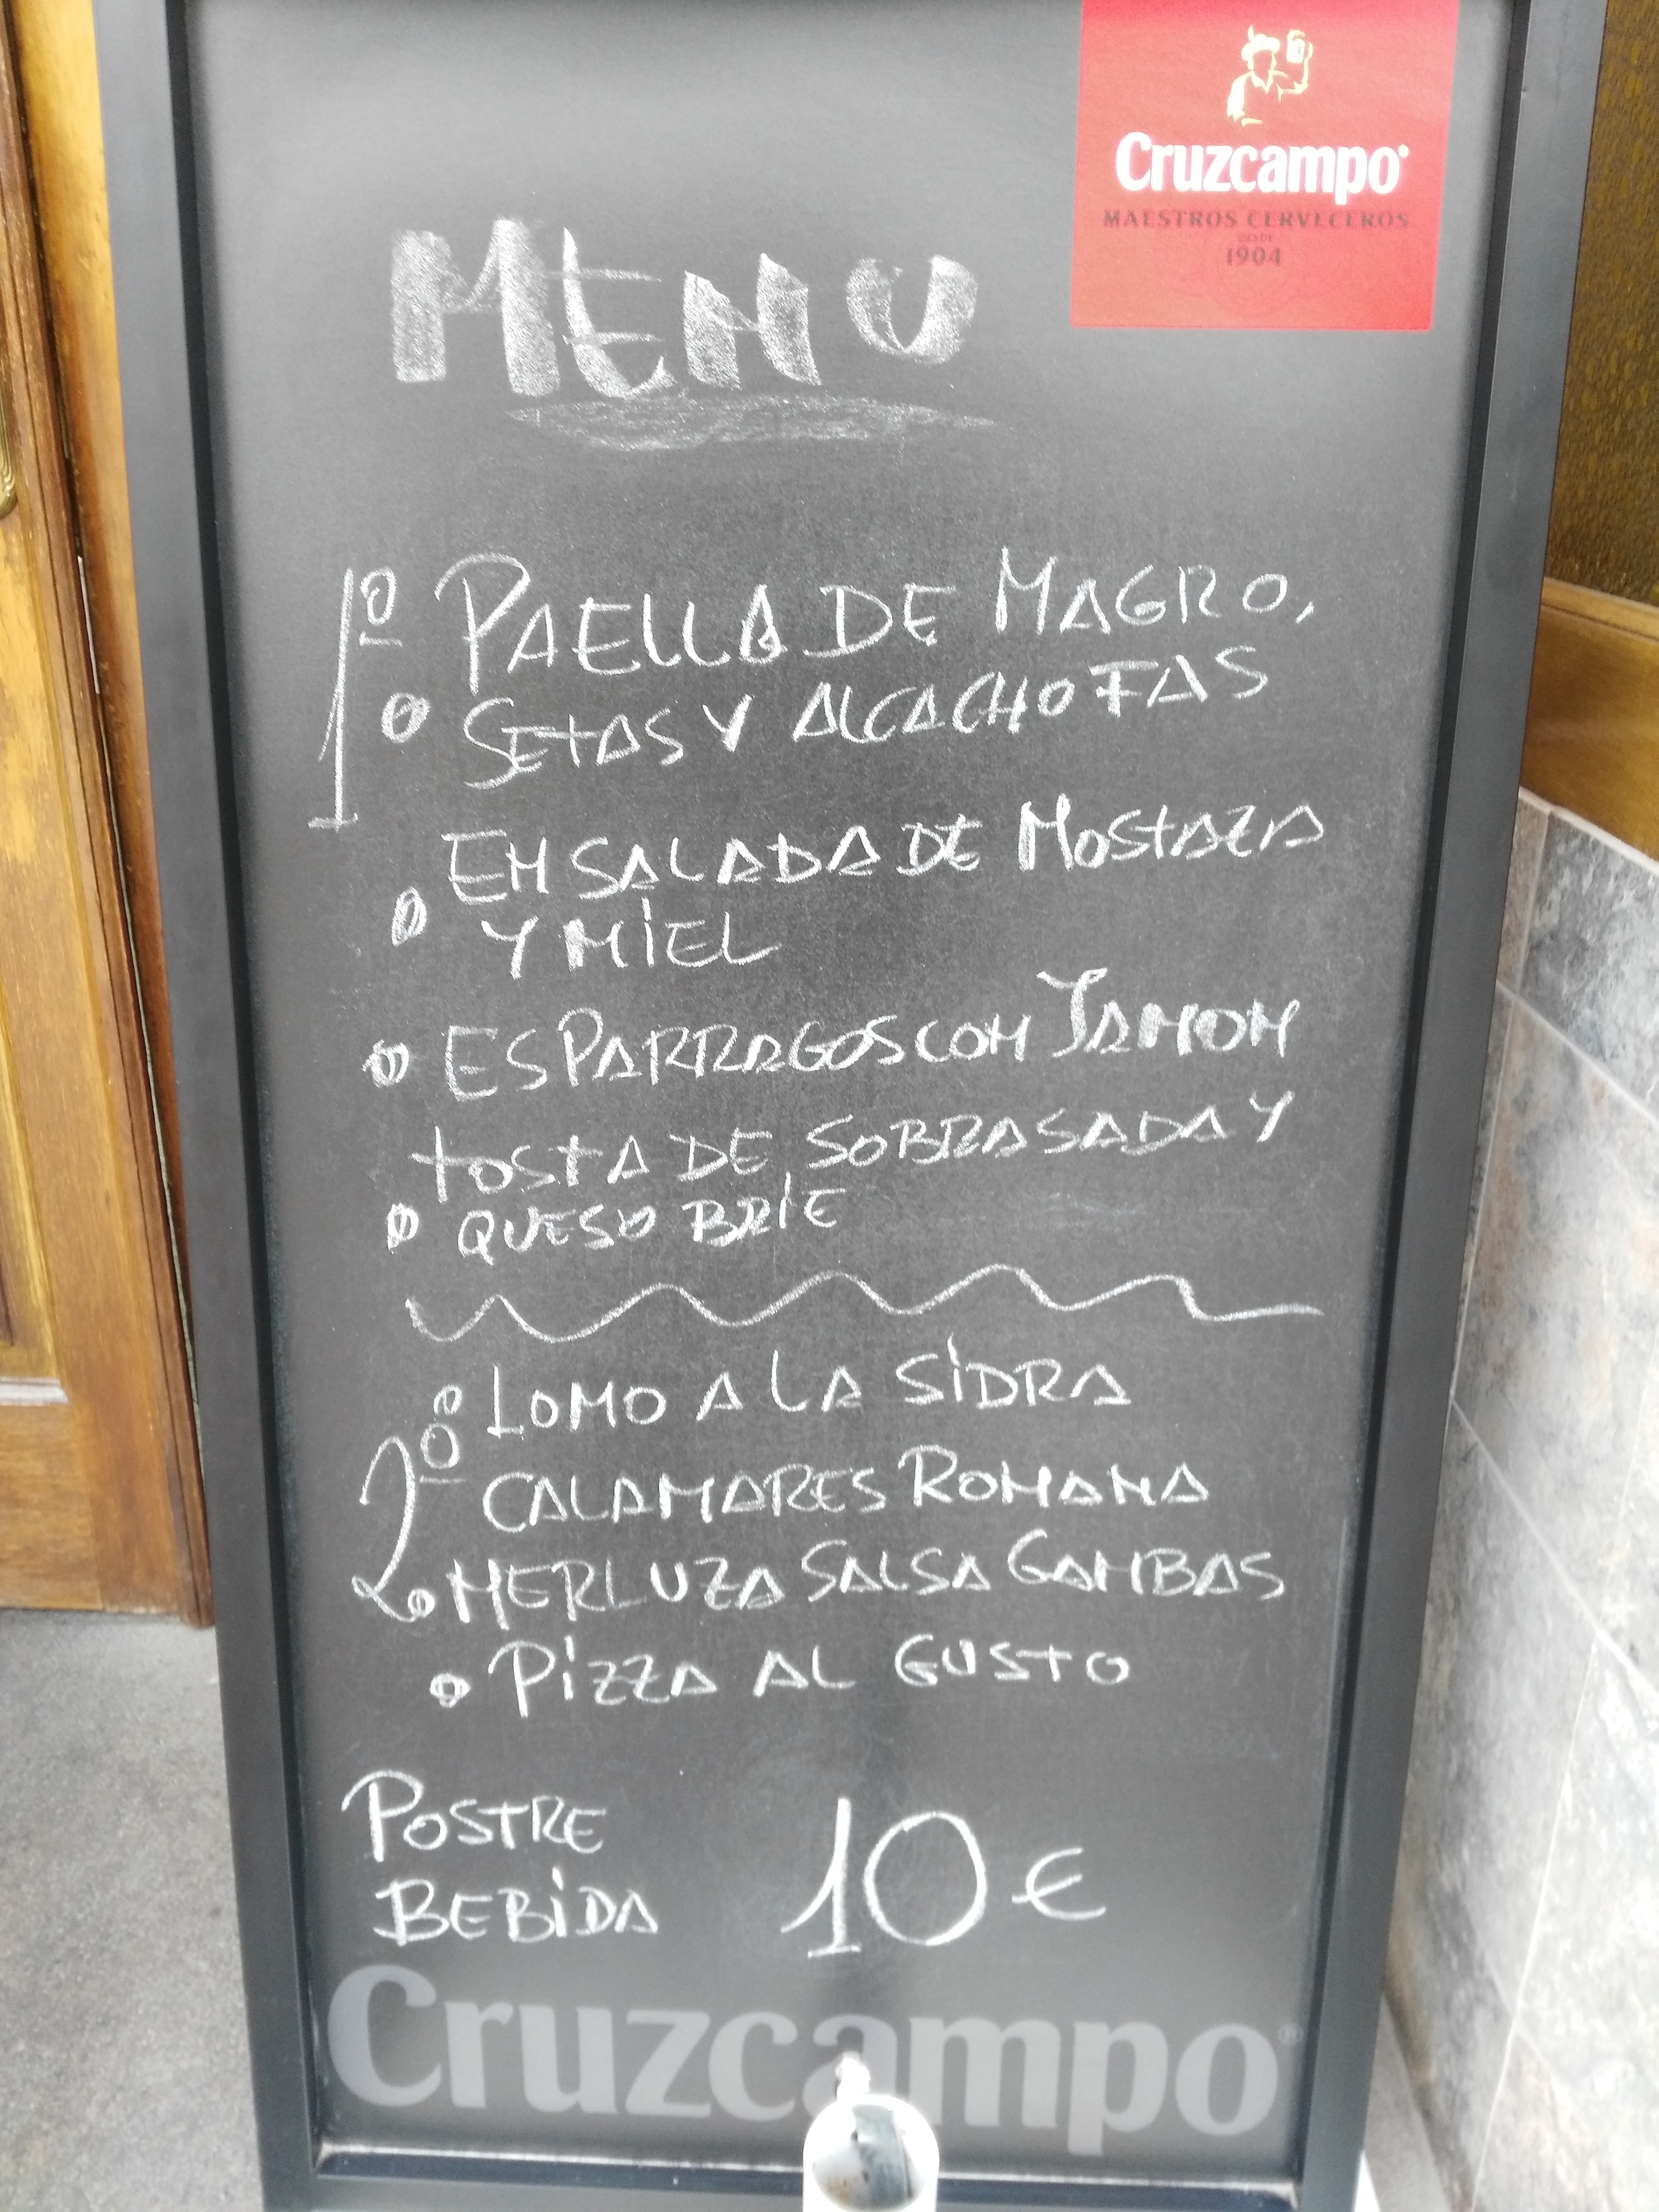 Cruzcampo
MAESTROS CERVECEROS
DESDE
1904
MENU
1º PAELLA DE MAGRO,
SETAS Y ALCACHOFAS
ENSALADA DE MOSTAZA
Y MIEL
ESPARRAGOS CON JAMON
TOSTA DE SOBRASADA Y
QUESO BRIE
2º LOMO A LA SIDRA
CALAMARES ROMANA
MERLUZA SALSA GAMBAS
PIZZA AL GUSTO
POSTRE
BEBIDA 10€
Cruzcampo®